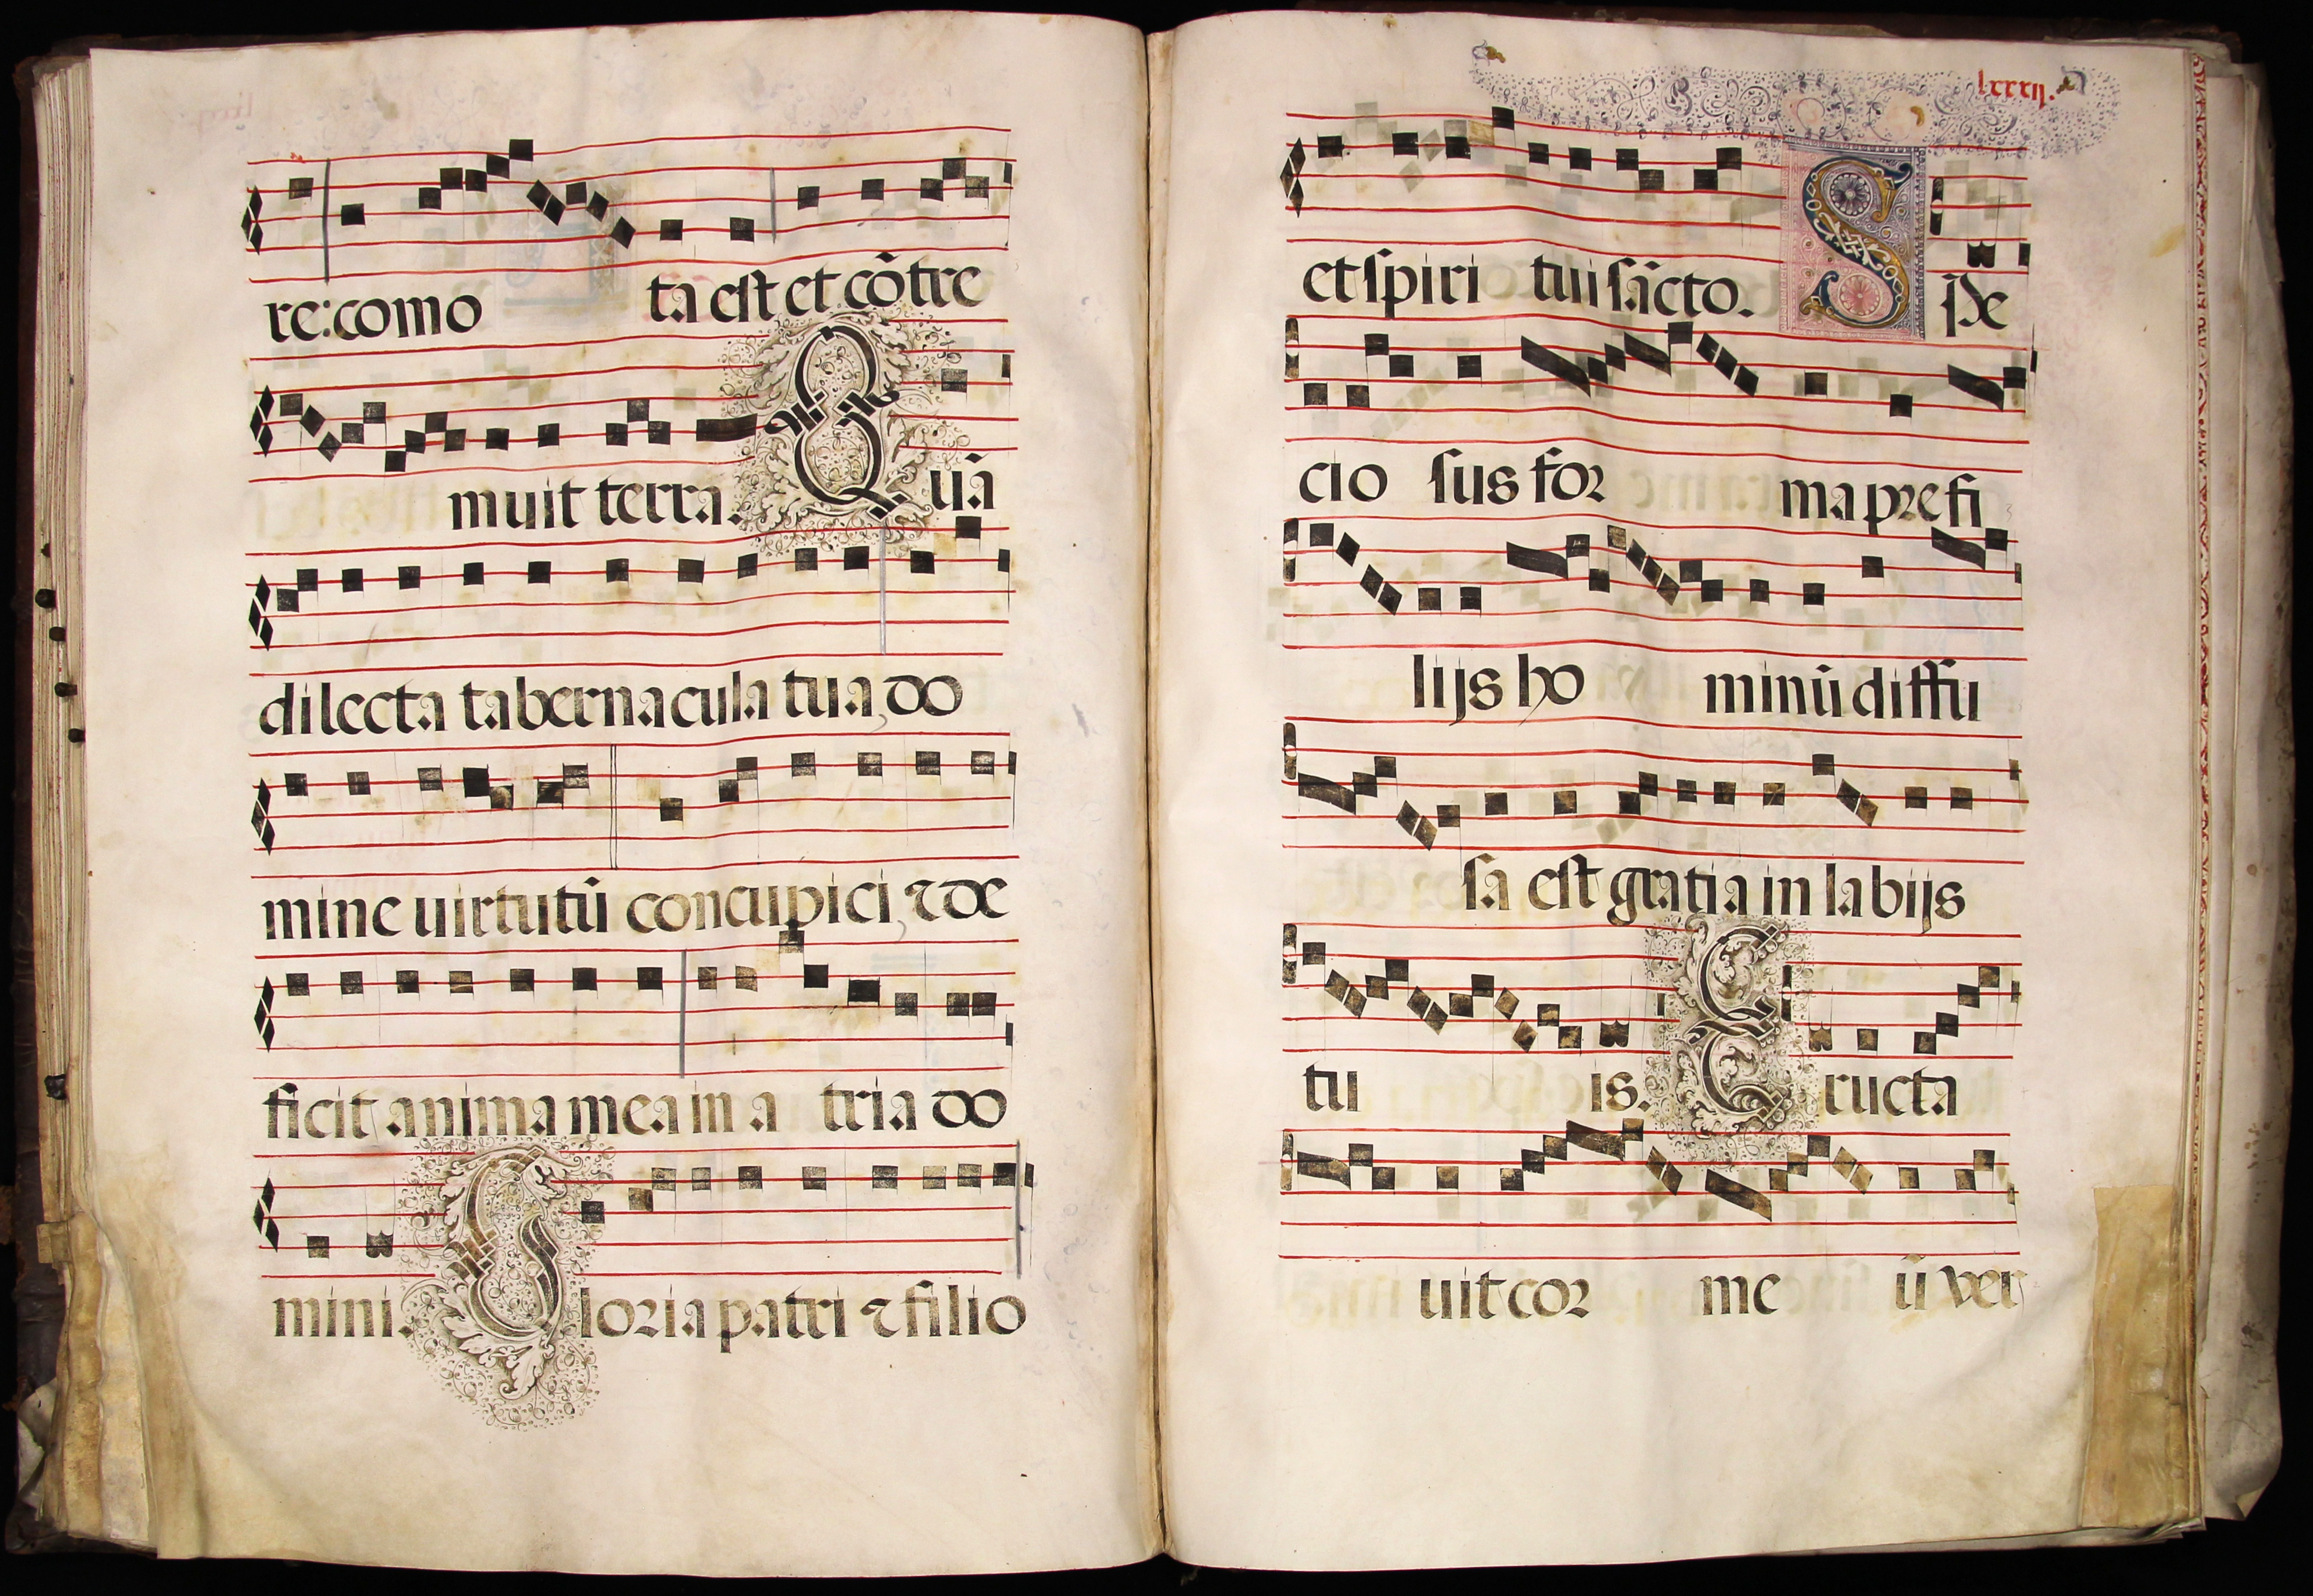 re: como ta est et cōtre
muit terra. Quā
dilecta tabernacula tua, do
mine uirtutū concupici, ⁊ de
ficit anima mea in a tria do
mini. Gloria patri ⁊ filio
lxxxij.
et spiri tui sācto. Spe
cio sus for ma pre fi
lijs ho minū diffu
sa est gratia in labijs
tu is. Eructa
uit cor me ū ver